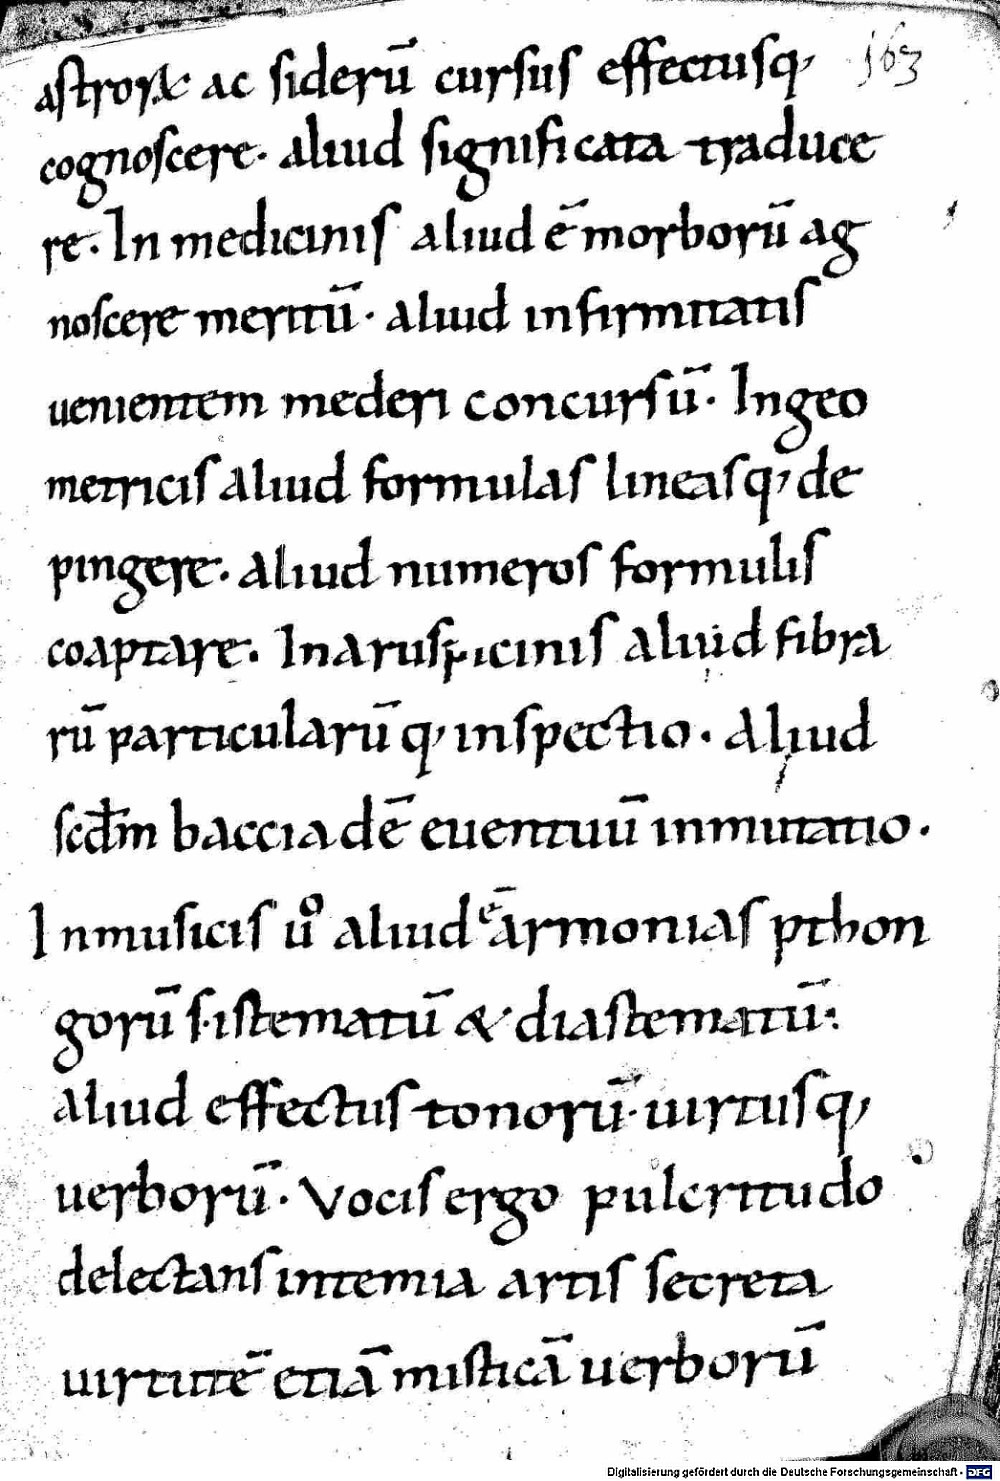 astroꝝ ac siderū cursus effectusq, 163
cognoscere. aliud significata traduce
re. In medicinis aliud ē morborū ag
noscere meritū. aliud infirmitatis
uenientem mederi concursū. In geo
metricis aliud formulas lineasq, de
pingere. aliud numeros formulis
coaptare. In aruspicinis aliud fibra
rū particularū q, inspectio. Aliud
scdm̄ bacciadē euentuū inmutatio.
In musicis uͦ aliud ē armonias pthon
gorū sistematū & diastematū.
aliud effectus tonorū. uirtusq,
uerborū. Vocis ergo pulcritudo
delectans intemia artis secreta
uirtutē etiā misticā uerborū
Digitalisierung gefördert durch die Deutsche Forschungsgemeinschaft - DFG